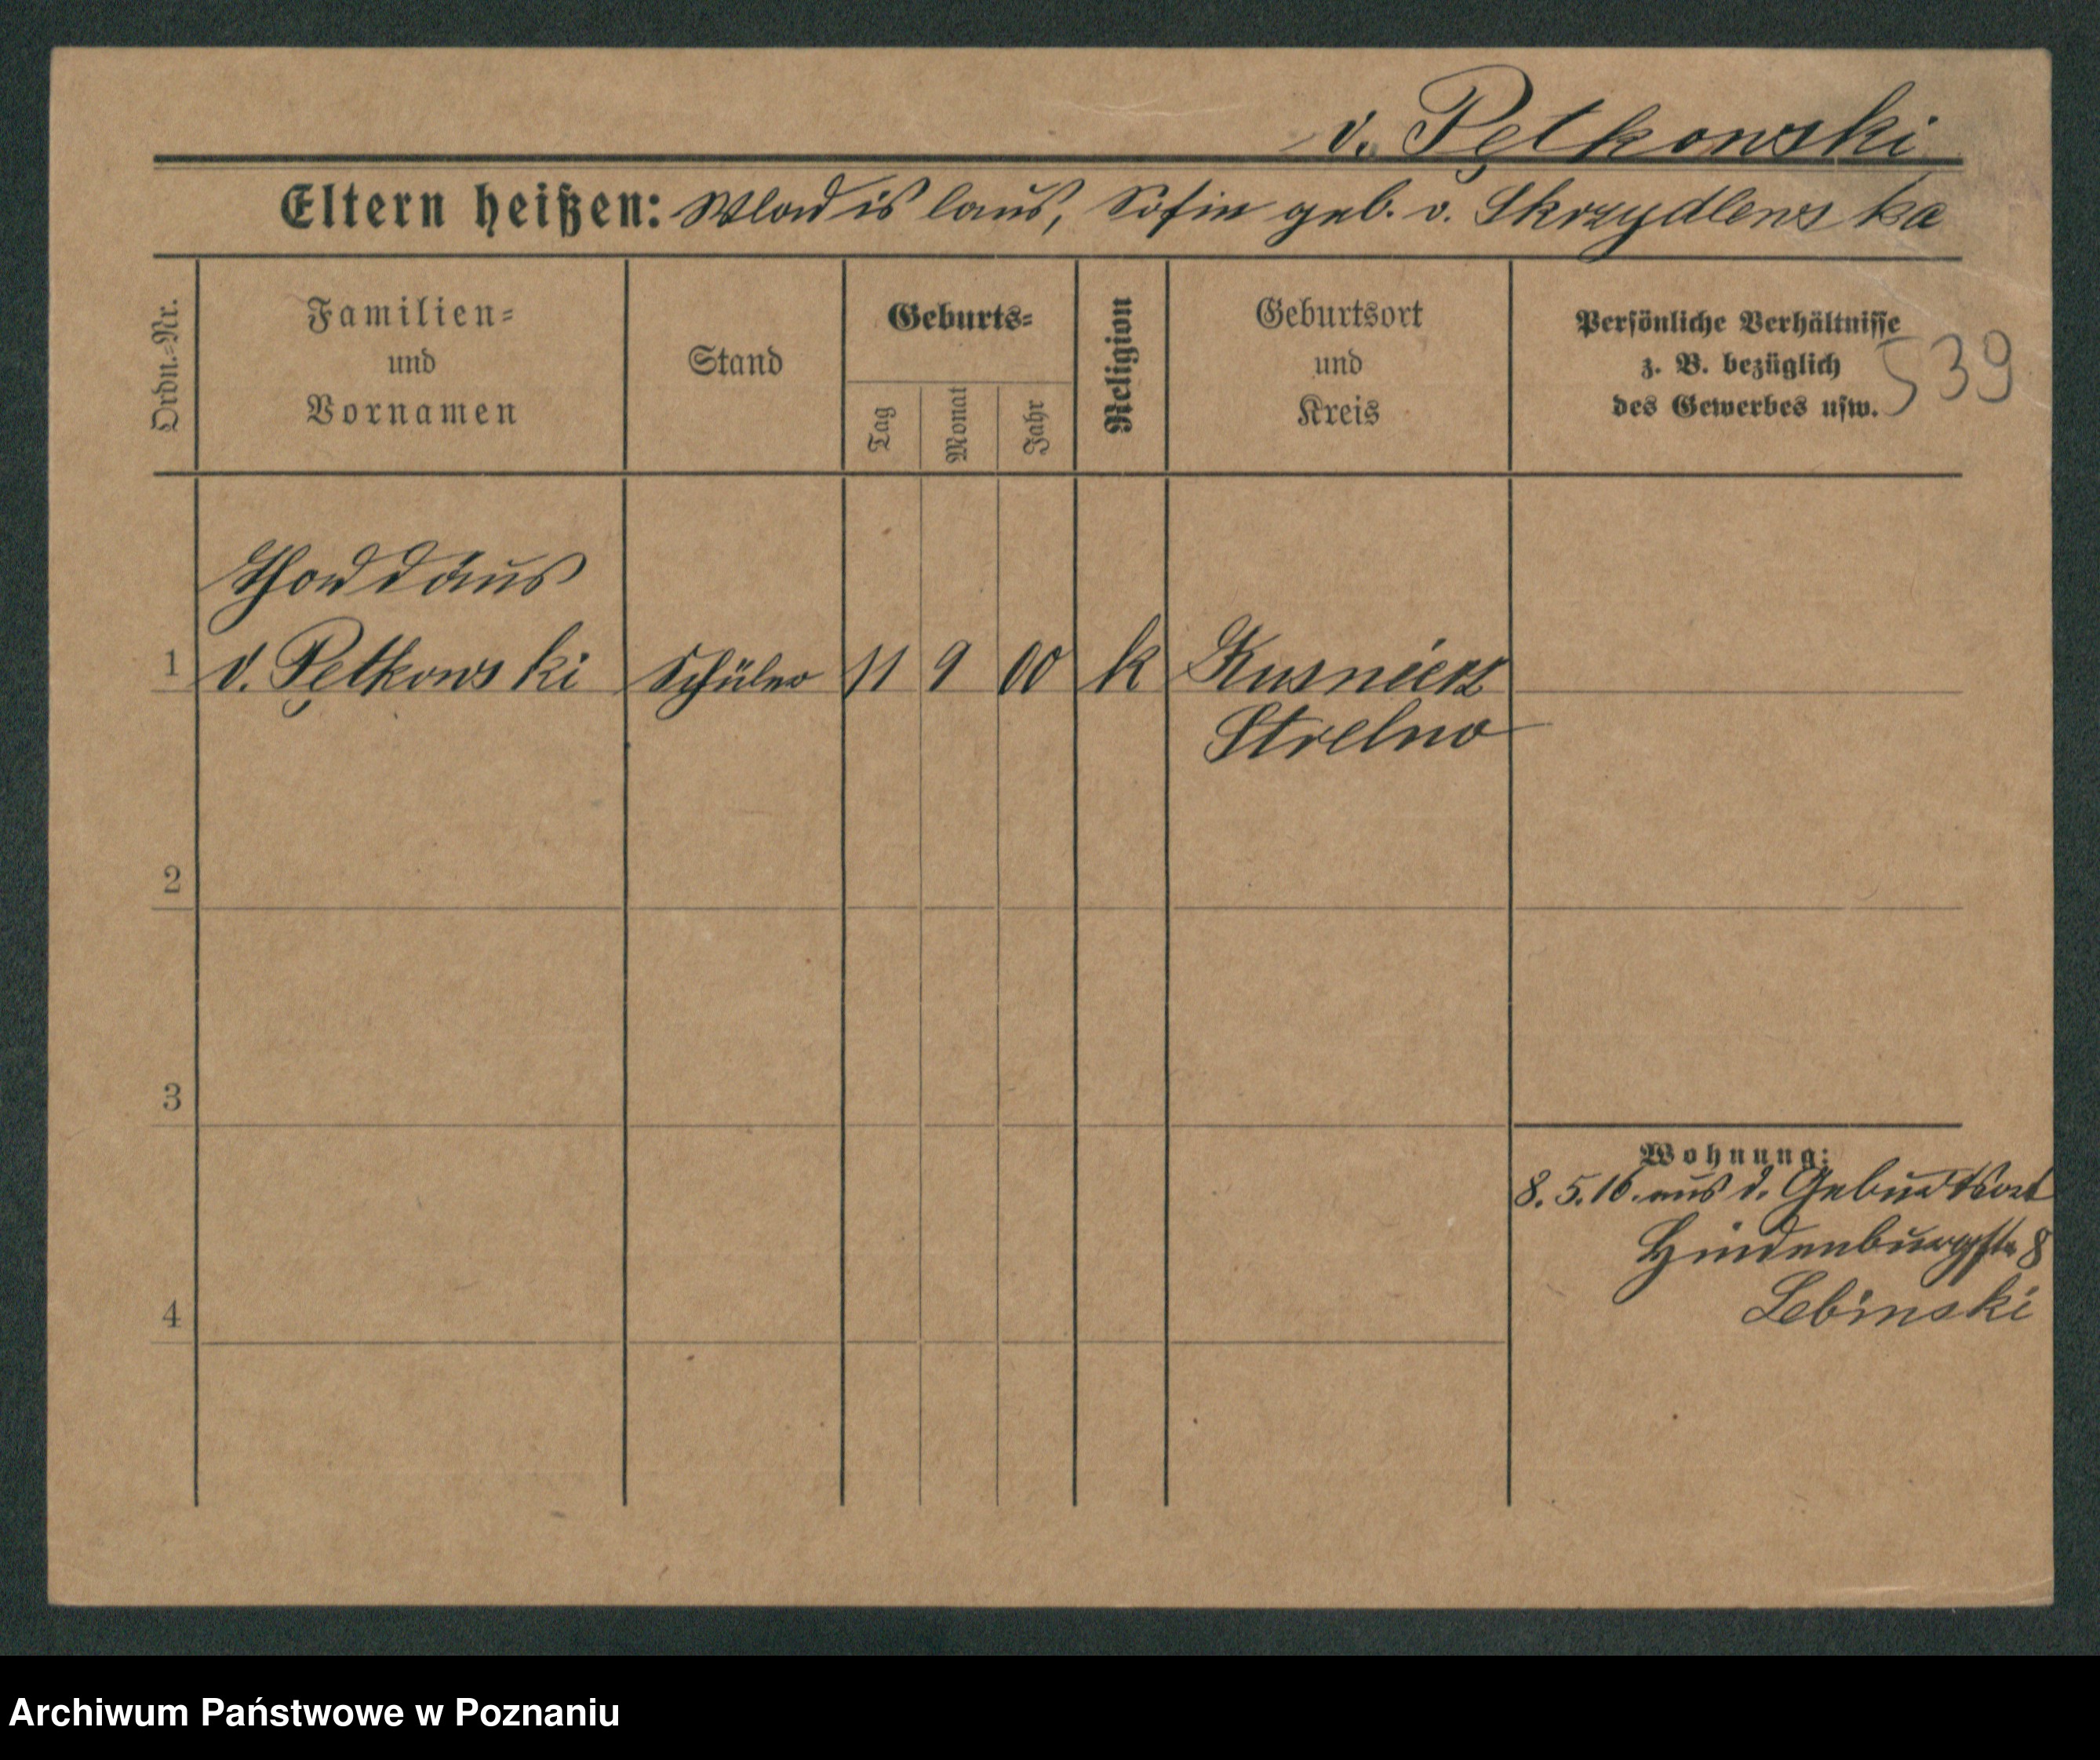 v. Pętkowski
Eltern heißen: Wladislaus, Sofie geb. v. Skrzydlewska
Ordn.=Nr.
Familien=
und
Vornamen
Stand
Geburts=
Tag
Monat
Jahr
Religion
Geburtsort
und
Kreis
Persönliche Verhältnisse
z. B. bezüglich
des Gewerbes usw.
539
Thaddäus
1 v. Pętkowski Schüler 11 9 00 k Kusnierz
Strelno
2
3
4
Wohnung:
8. 5. 16. aus d. Geburtsort
Hindenburgstr 8
Lebinski
Archiwum Państwowe w Poznaniu